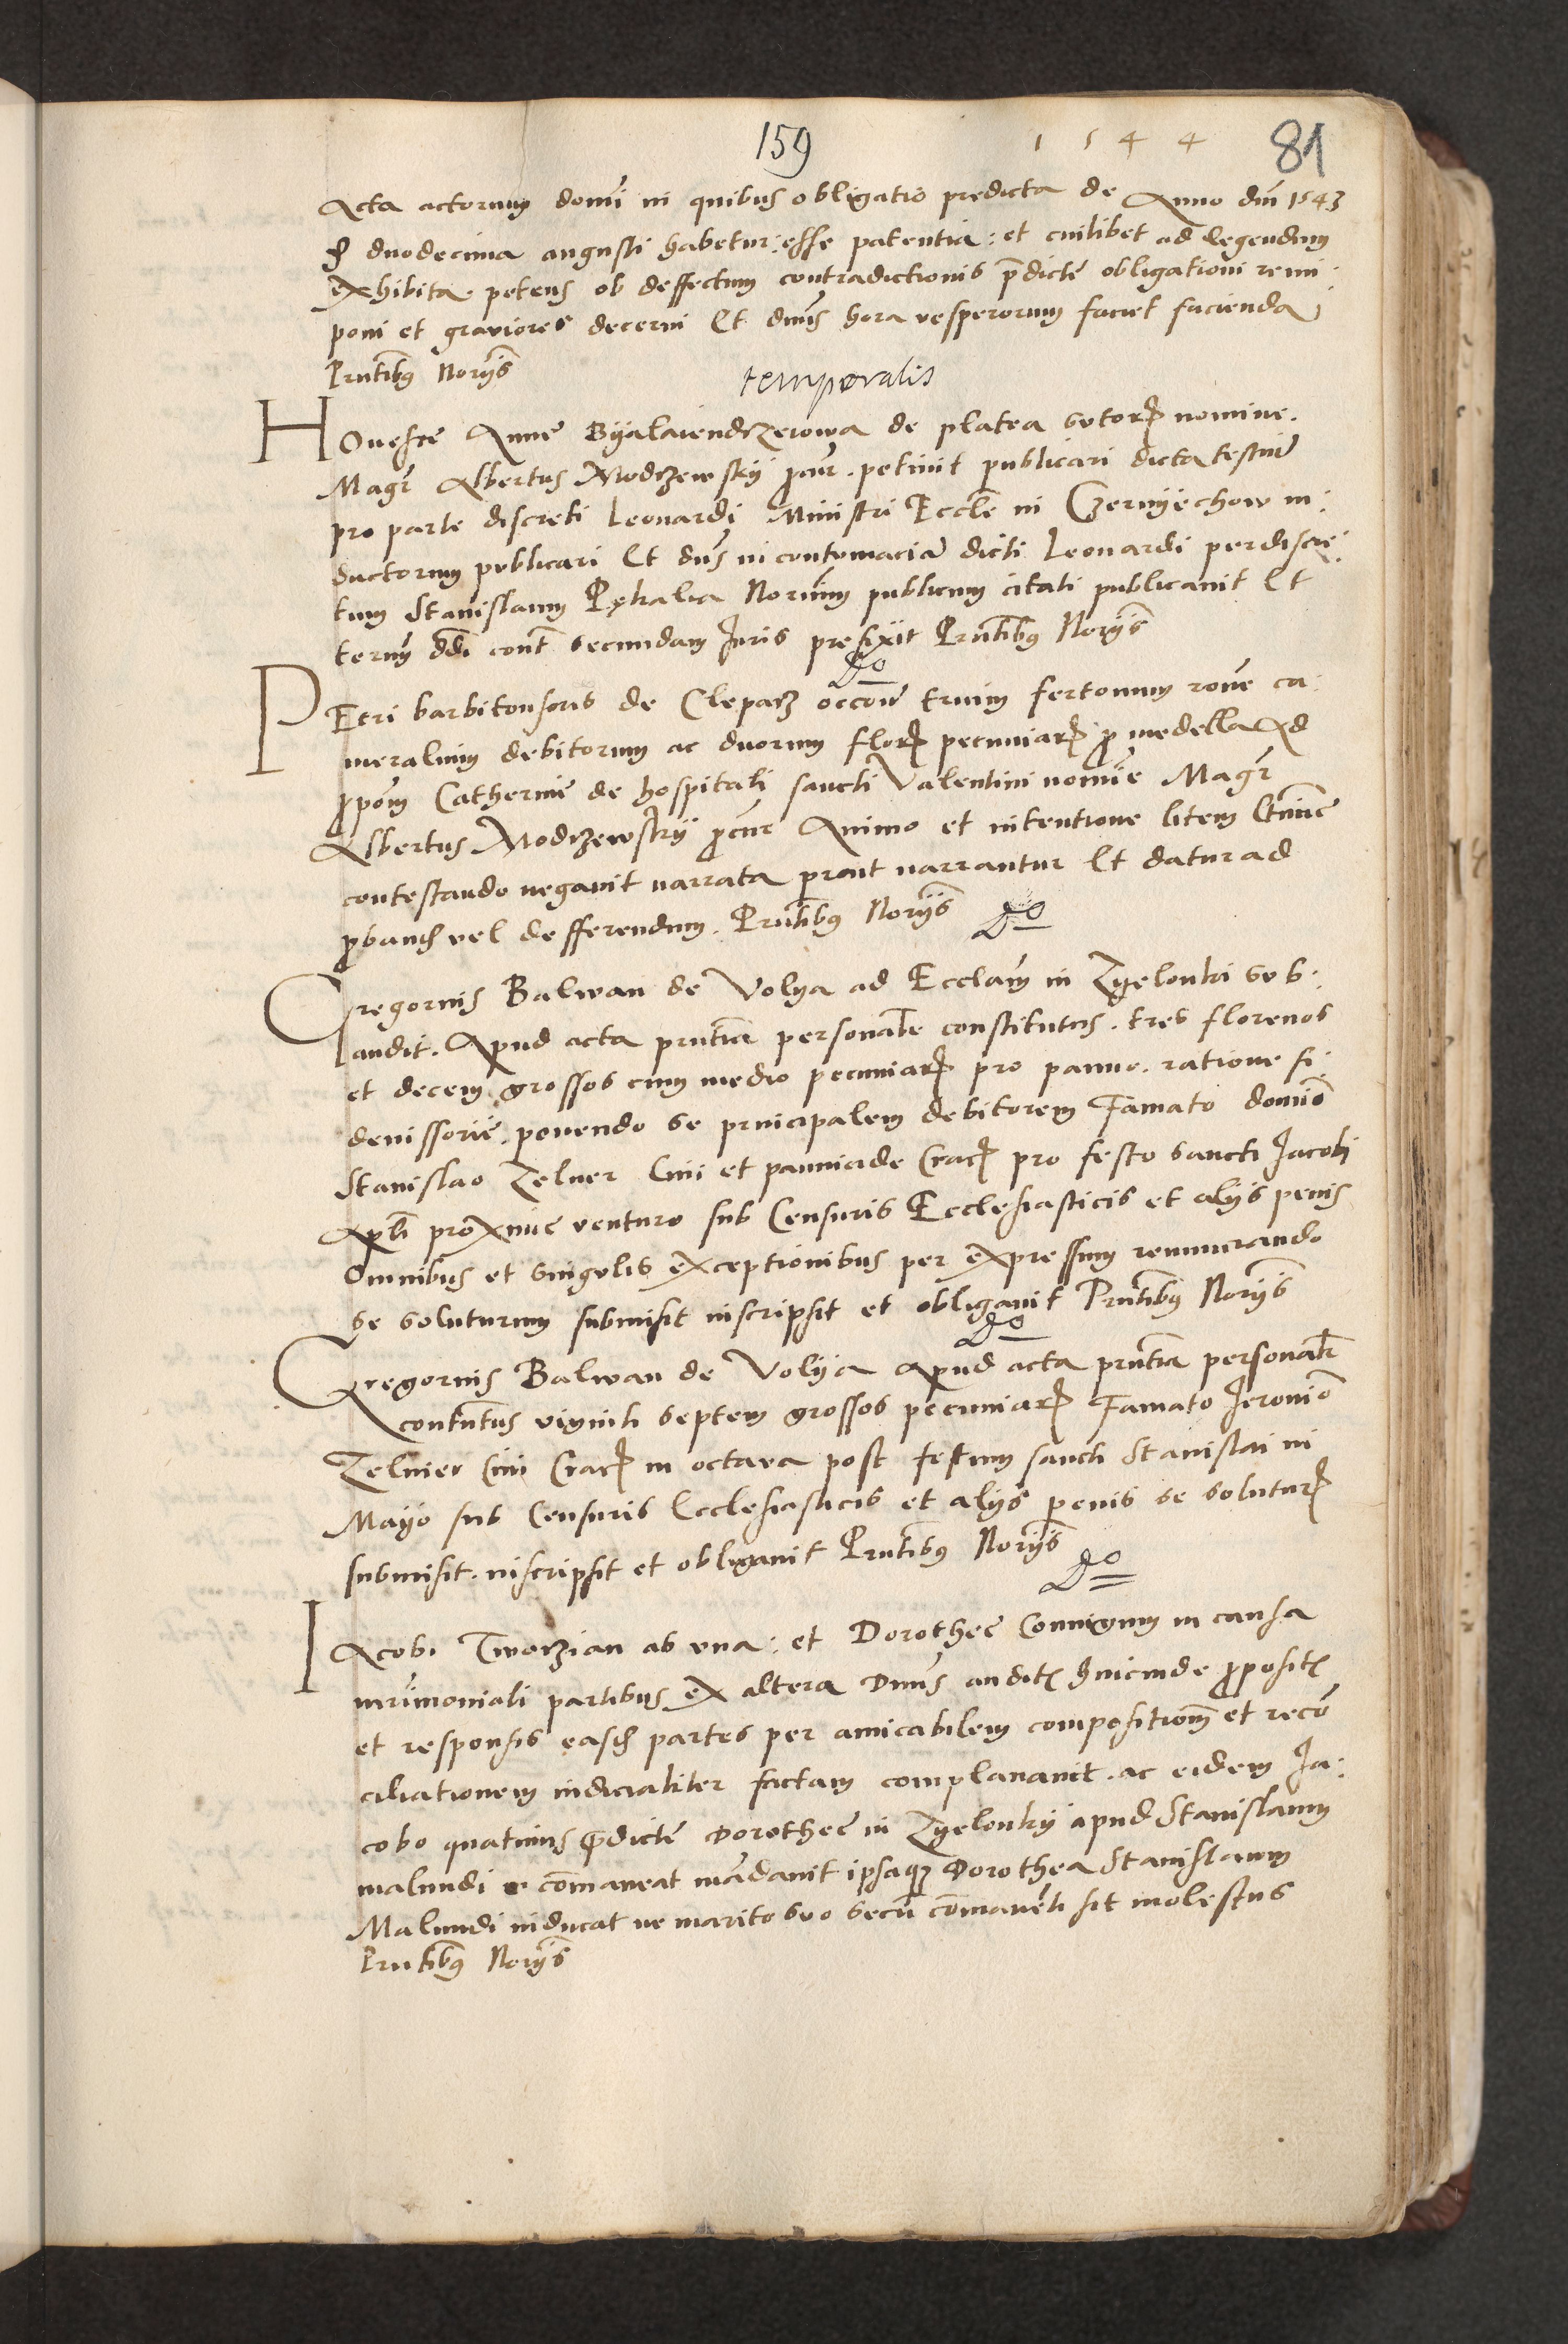 159 1 5 4 4 81
Acta actorum domi in quibus obligatio predicta de Anno dni 1543
duodecima augusti habetur: esse patentia: et cuilibet ad legendum
exhibita. petens ob deffectum contradictionis pdicte obligationi
poni et graviores decerni Et dnus hora vesperorum faciet facienda
Pntibus Noriis
temporalis
Honeste Anne de platea sutor nomine.
Magr Albertus Modrzewsky pcur. petiuit publicari dicta testium
pro parte discreti Leonardi Ministri Eccle in Czernyechow in:
ductorum publicari Et dns in contumacia dicti Leonardi per discre:
tum Stanislaum Pekalia Norium publicum citati publicauit Et
termm ddi cont secundam Juris prefixit Pntibus Noriis
Do
Petri barbitonsoris de Clepacz occone trium fertonum rone ca:
meralium debitorum ac duorum flor pecuniar p medella Ad
ppom Catherine de hospitali sancti Valentini nomine Magr
Albertus Modrzewsky pcur Animo et intentione litem
contestando negauit narrata prout narrantur Et datur ad
pband vel defferendum. Pntibus Noriis Do
Gregorius Balwan de Volya ad Ecclam in Zyelonki sub:
audit. Apud acta pntia personalr constitutus. tres florenos
et decem grossos cum medio pecuniar pro panno. ratione fi:
deiussorie. ponendo se principalem debitorem Famato domino
Stanislao Zelner Ciui et pannicide Crac pro festo sancti Jacobi
Apli proxime venturo sub Censuris Ecclesiasticis et alys penis
Omnibus et singulis exceptionibus per expressum renunciando
se soluturum submisit inscripsit et obligauit Pntibus Noriis
Do
Gregorius Balwan de Volyia Apud acta pntia personalr
constitutus viginti septem grossos pecuniar Famato Jeronimo
Zelner Ciui Crac in octava post festum sancti Stanislai in
Mayo sub Censuris Ecclesiasticis et alys penis se solutur
submisit. inscripsit et obligauit Pntibus Noriis
Do
Jacobi Tworzian ab una: et Dorothee Coniugum in causa
mrimoniali partibus ex altera Dnus audit hincinde pposit
et responsis easd partes per amicabilem compositionem et recon
ciliationem iudicialiter factam complanauit. ac eidem Ja:
cobo quatinus pdicte Dorothee in Zyelonky apud Stanislaum
malundi comaneat mandauit ipsaque Dorothea Stanislaum
Malundi inducat ne marito suo secum comanenti sit molestus
Pntibus Noriis